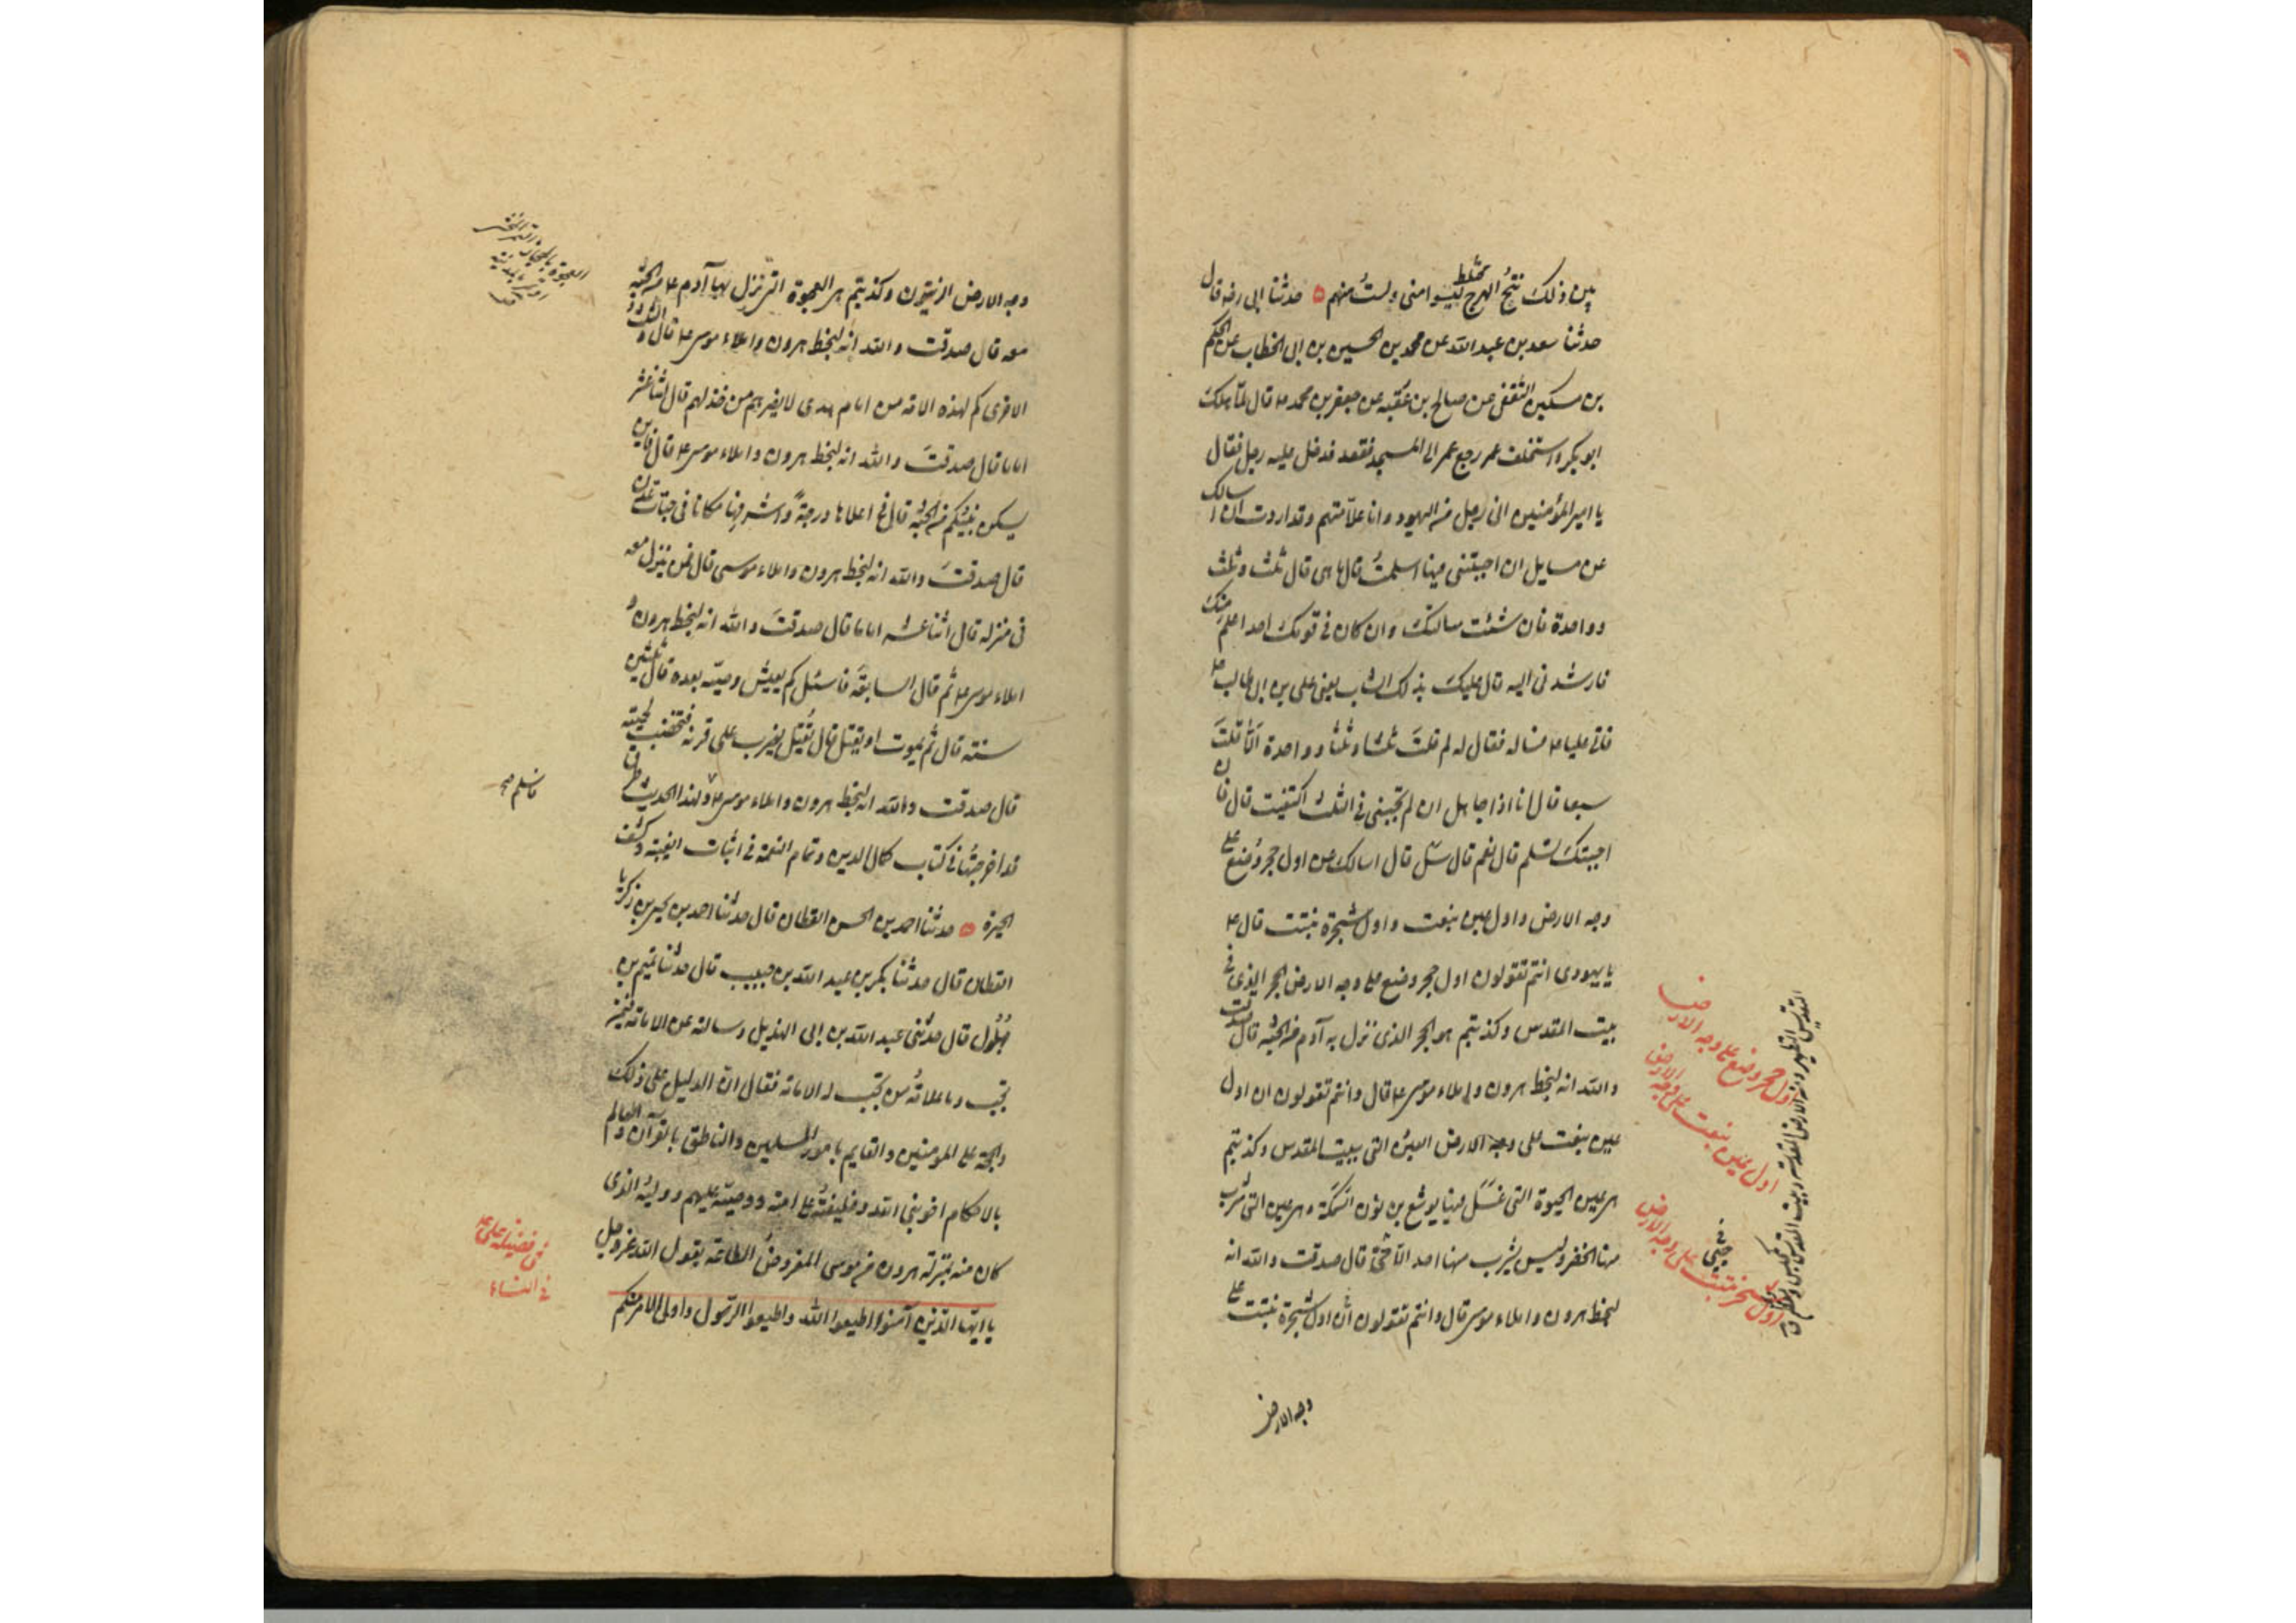 بين ذلك نتج الهرج ليسوا منى ولست منهم ۵ حدثنا ابى رضه قال
حدثنا سعد بن عبد الله عن محمد بن الحسين بن ابى الخطاب عن الحكم
بن مسكين الثقفى عن صالح بن عقبه عن جعفر بن محمد ع قال لما هلك
ابو بكر و استخلف عمر رجع عمر الى المسجد فقعد فدخل عليه رجل فقال
يا امير المؤمنين انى رجل من اليهود و انا علامتهم و قد اردت ان اسالك
عن مسايل ان اجبتنى فيها اسلمت قال ما هى قال ثلث و ثلث
و واحدة فان شئت سالتك و ان كان فى قومك احد اعلم منك
فارشدنى اليه قال عليك بذلك الشاب يعنى على بن ابى طالب ع
فاتى عليا ع فساله فقال له لم قلت ثلثا و ثلثا و واحدة الا قلت
سبعا قال انا اذا جاهل ان لم تجبنى فى الثلث اكتفيت قال فان
اجبتك تسلم قال نعم قال سل قال اسالك عن اول حجر وضع على
وجه الارض و اول عين نبعت و اول شجرة نبتت قال ع
يا يهودى انتم تقولون اول حجر وضع على وجه الارض الحجر الذى فى
بيت المقدس و كذبتم هو الحجر الذى نزل به آدم من الجنة قال صدقت
و الله انه لبخط هرون و املاء موسى ع قال و انتم تقولون ان اول
عين نبعت على وجه الارض العين التى ببيت المقدس و كذبتم
هى عين الحيوة التى غسل فيها يوشع بن نون السمكة و هى عين التى شرب
منها الخضر و ليس يشرب منها احد الا حى قال صدقت و الله انه
لبخط هرون و املاء موسى قال و انتم تقولون ان اول شجرة نبتت على
وجه الارض
اول حجر وضع على وجه الارض
اول عين نبعت على وجه الارض
اول شجر نبتت على وجه الارض
وجه الارض الزيتون و كذبتم هى العجوة التى نزل بها آدم ع من الجنة
معه قال صدقت و الله انه لبخط هرون و املاء موسى ع قال و الثلث
الاخرى كم لهذه الامة من امام هدى لا يضرهم من خذلهم قال اثنا عشر
اماما قال صدقت و الله انه لبخط هرون و املاء موسى ع قال فاين
يسكن نبيكم من الجنة قال فى اعلاها درجة و اشرفها مكانا فى جنات عدن
قال صدقت و الله انه لبخط هرون و املاء موسى قال فمن ينزل معه
فى منزله قال اثنا عشر اماما قال صدقت و الله انه لبخط هرون و
املاء موسى ع ثم قال السابقة فاسئل كم يعيش وصيه بعده قال ثلثين
سنة قال ثم يموت او يقتل قال يقتل يضرب على قرنه فتخضب لحيته
قال صدقت و الله انه لبخط هرون و املاء موسى ع و لهذا الحديث طرق
قد اخرجتها فى كتاب كمال الدين و تمام النعمة فى اثبات الغيبة و كشف
الحيرة ۵ حدثنا احمد بن الحسن القطان قال حدثنا احمد بن يحيى بن زكريا
القطان قال حدثنا بكر بن عبد الله بن حبيب قال حدثنا تميم بن
بهلول قال حدثنى عبد الله بن ابى الهذيل و سالته عن الامامة فيمن
تجب و ما علامة من تجب له الامامة فقال ان الدليل على ذلك
و الحجة على المؤمنين و القايم بامور المسلمين و الناطق بالقرآن و العالم
بالاحكام اخو نبى الله و خليفته على امته و وصيه عليهم و وليه الذى
كان منه بمنزلة هرون من موسى المفروض الطاعة يقول الله عز و جل
يا ايها الذين آمنوا اطيعوا الله و اطيعوا الرسول و اولى الامر منكم
فاسلم صح
فى فضيلة على ع
فى النساء